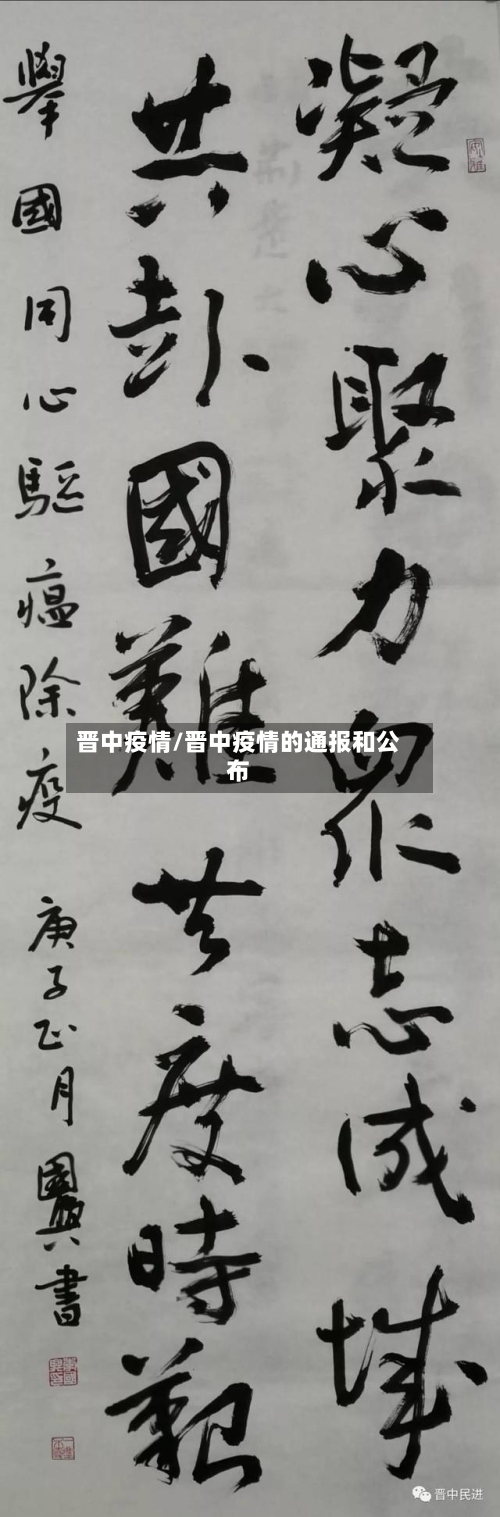 凝心聚力眾志成城
共赴國難共度時艱
舉國同心驅瘟除疫 庚子正月 國興書
晋中疫情/晋中疫情的通报和公
布
晋中民进